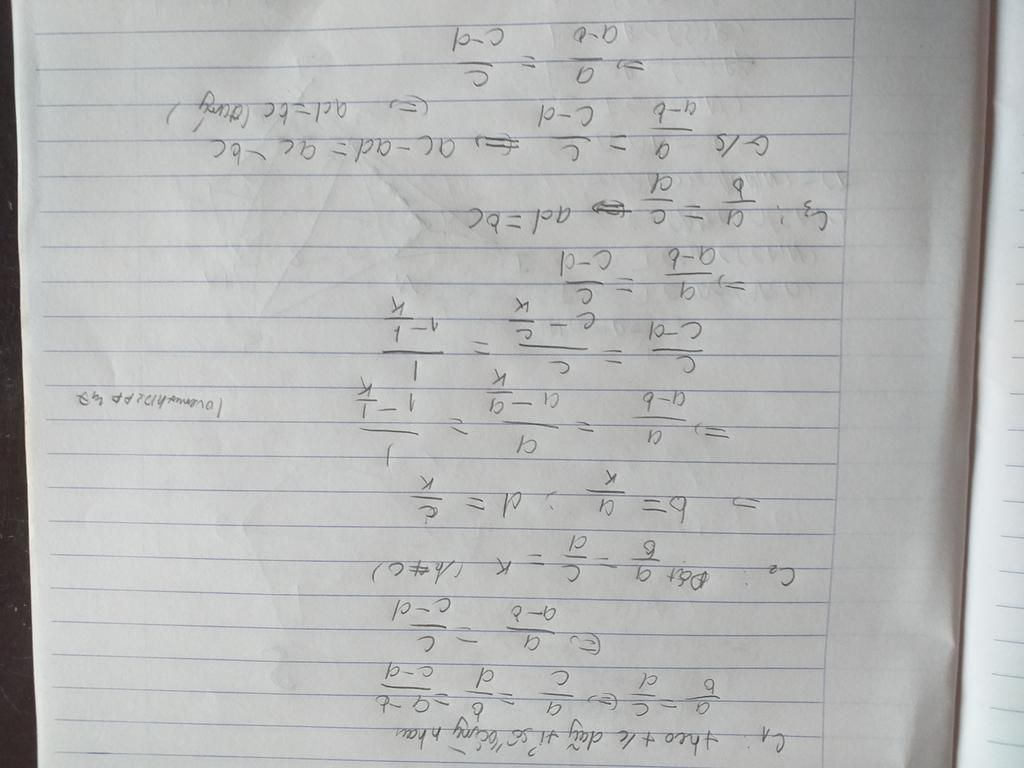 C₁ : theo t/c dãy tỉ số bằng nhau
a/b = c/d (=) a/c = b/d = a-b/c-d
(=) a/a-b = c/c-d
C₂ : Đặt a/b = c/d = k (k≠0)
=> b = a/k ; d = c/k
=> a/a-b = a/(a - a/k) = 1/(1 - 1/k)
c/c-d = c/(c - c/k) = 1/(1 - 1/k)
=> a/a-b = c/c-d
C₃ : a/b = c/d <=> ad = bc
G/s a/a-b = c/c-d <=> ac - ad = ac - bc
(=) ad = bc (đúng)
=> a/a-b = c/c-d